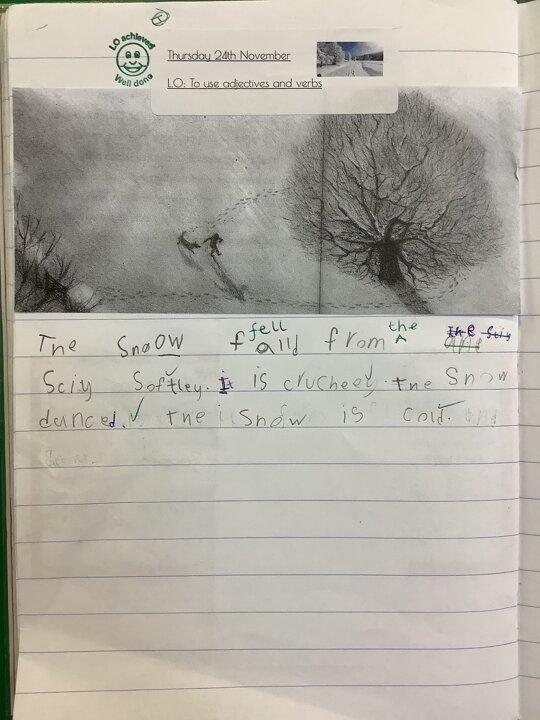 LO achieved
Well done
Thursday 24th November
LO: To use adjectives and verbs
fell the
The SnoOW falld from the Sciy
Sciy Softley. It is crucheey. the Snow
danced. the Snow is cold.